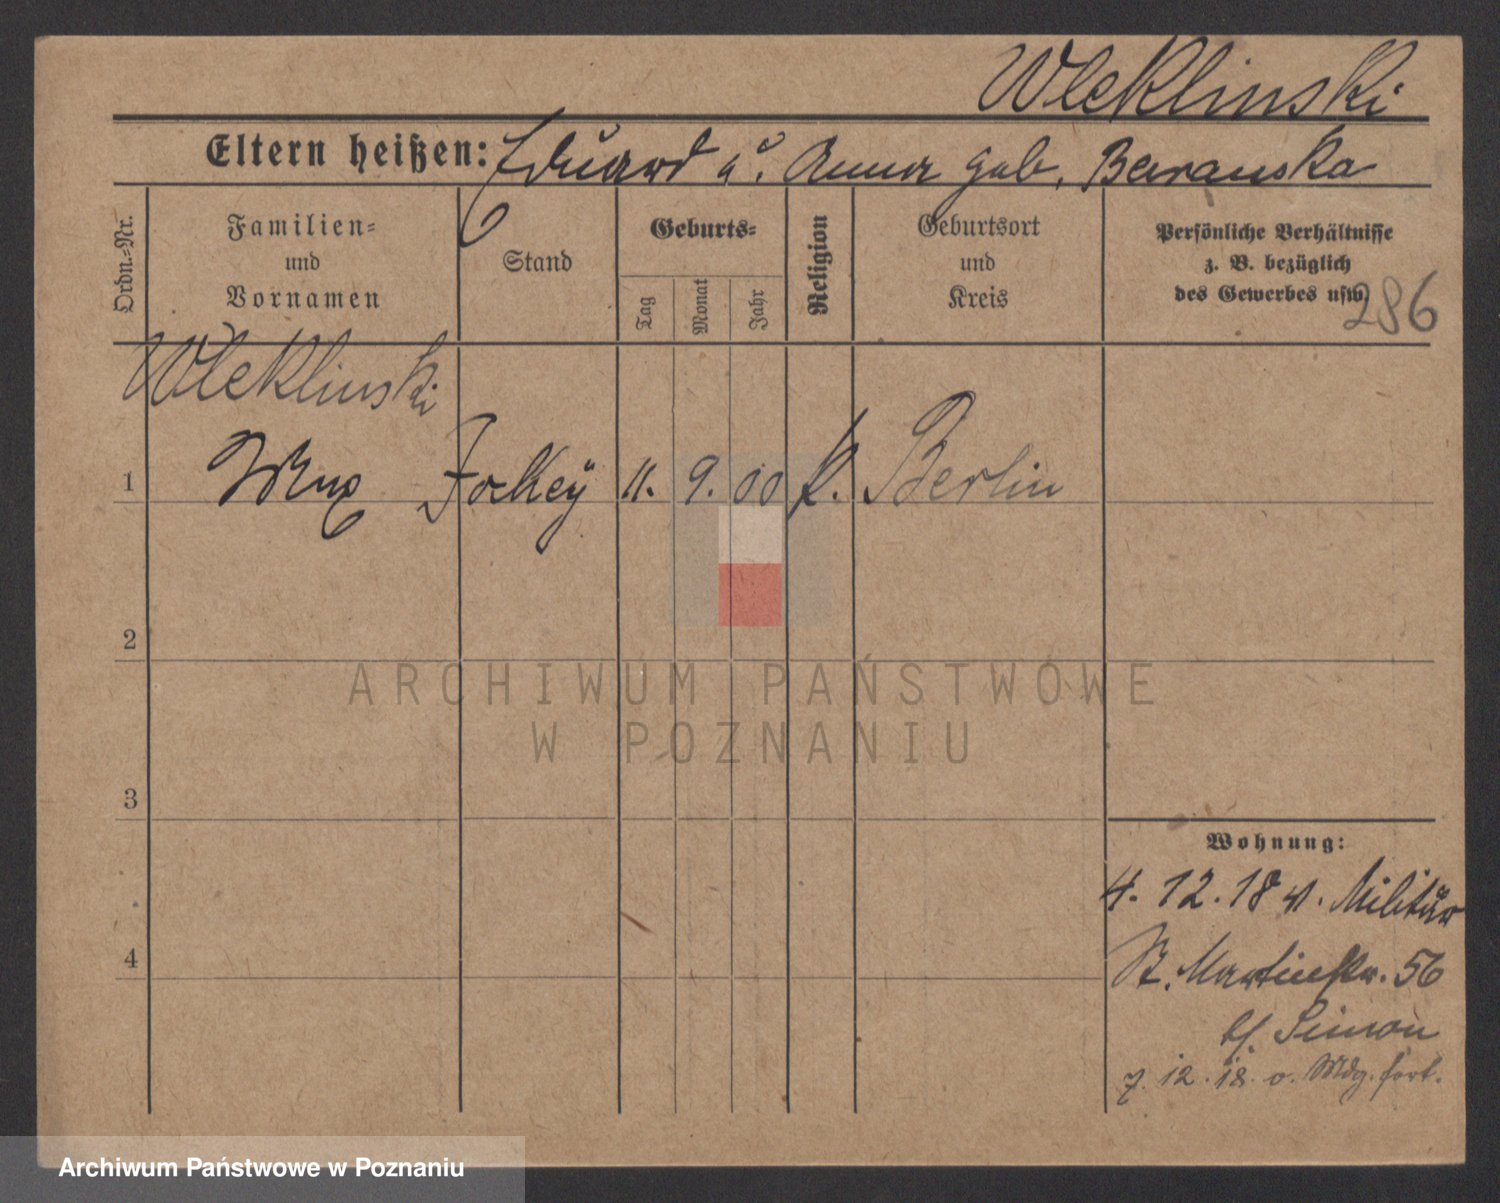 Wleklinski
Eltern heißen: Eduard u. Anna geb. Baranska
Ordn.-Nr.
Familien-
und
Vornamen
Stand
Geburts-
Tag
Monat
Jahr
Religion
Geburtsort
und
Kreis
Persönliche Verhältnisse
z. B. bezüglich
des Gewerbes usw.
286
Wleklinski
1 Max Jockey 11. 9. 00 k. Berlin
2
ARCHIWUM PAŃSTWOWE
W POZNANIU
3
Wohnung:
4. 12. 18 v. Militär
4
St. Martinstr. 56
b/ Simon
7. 12. 18. o. Mdg. fort.
Archiwum Państwowe w Poznaniu